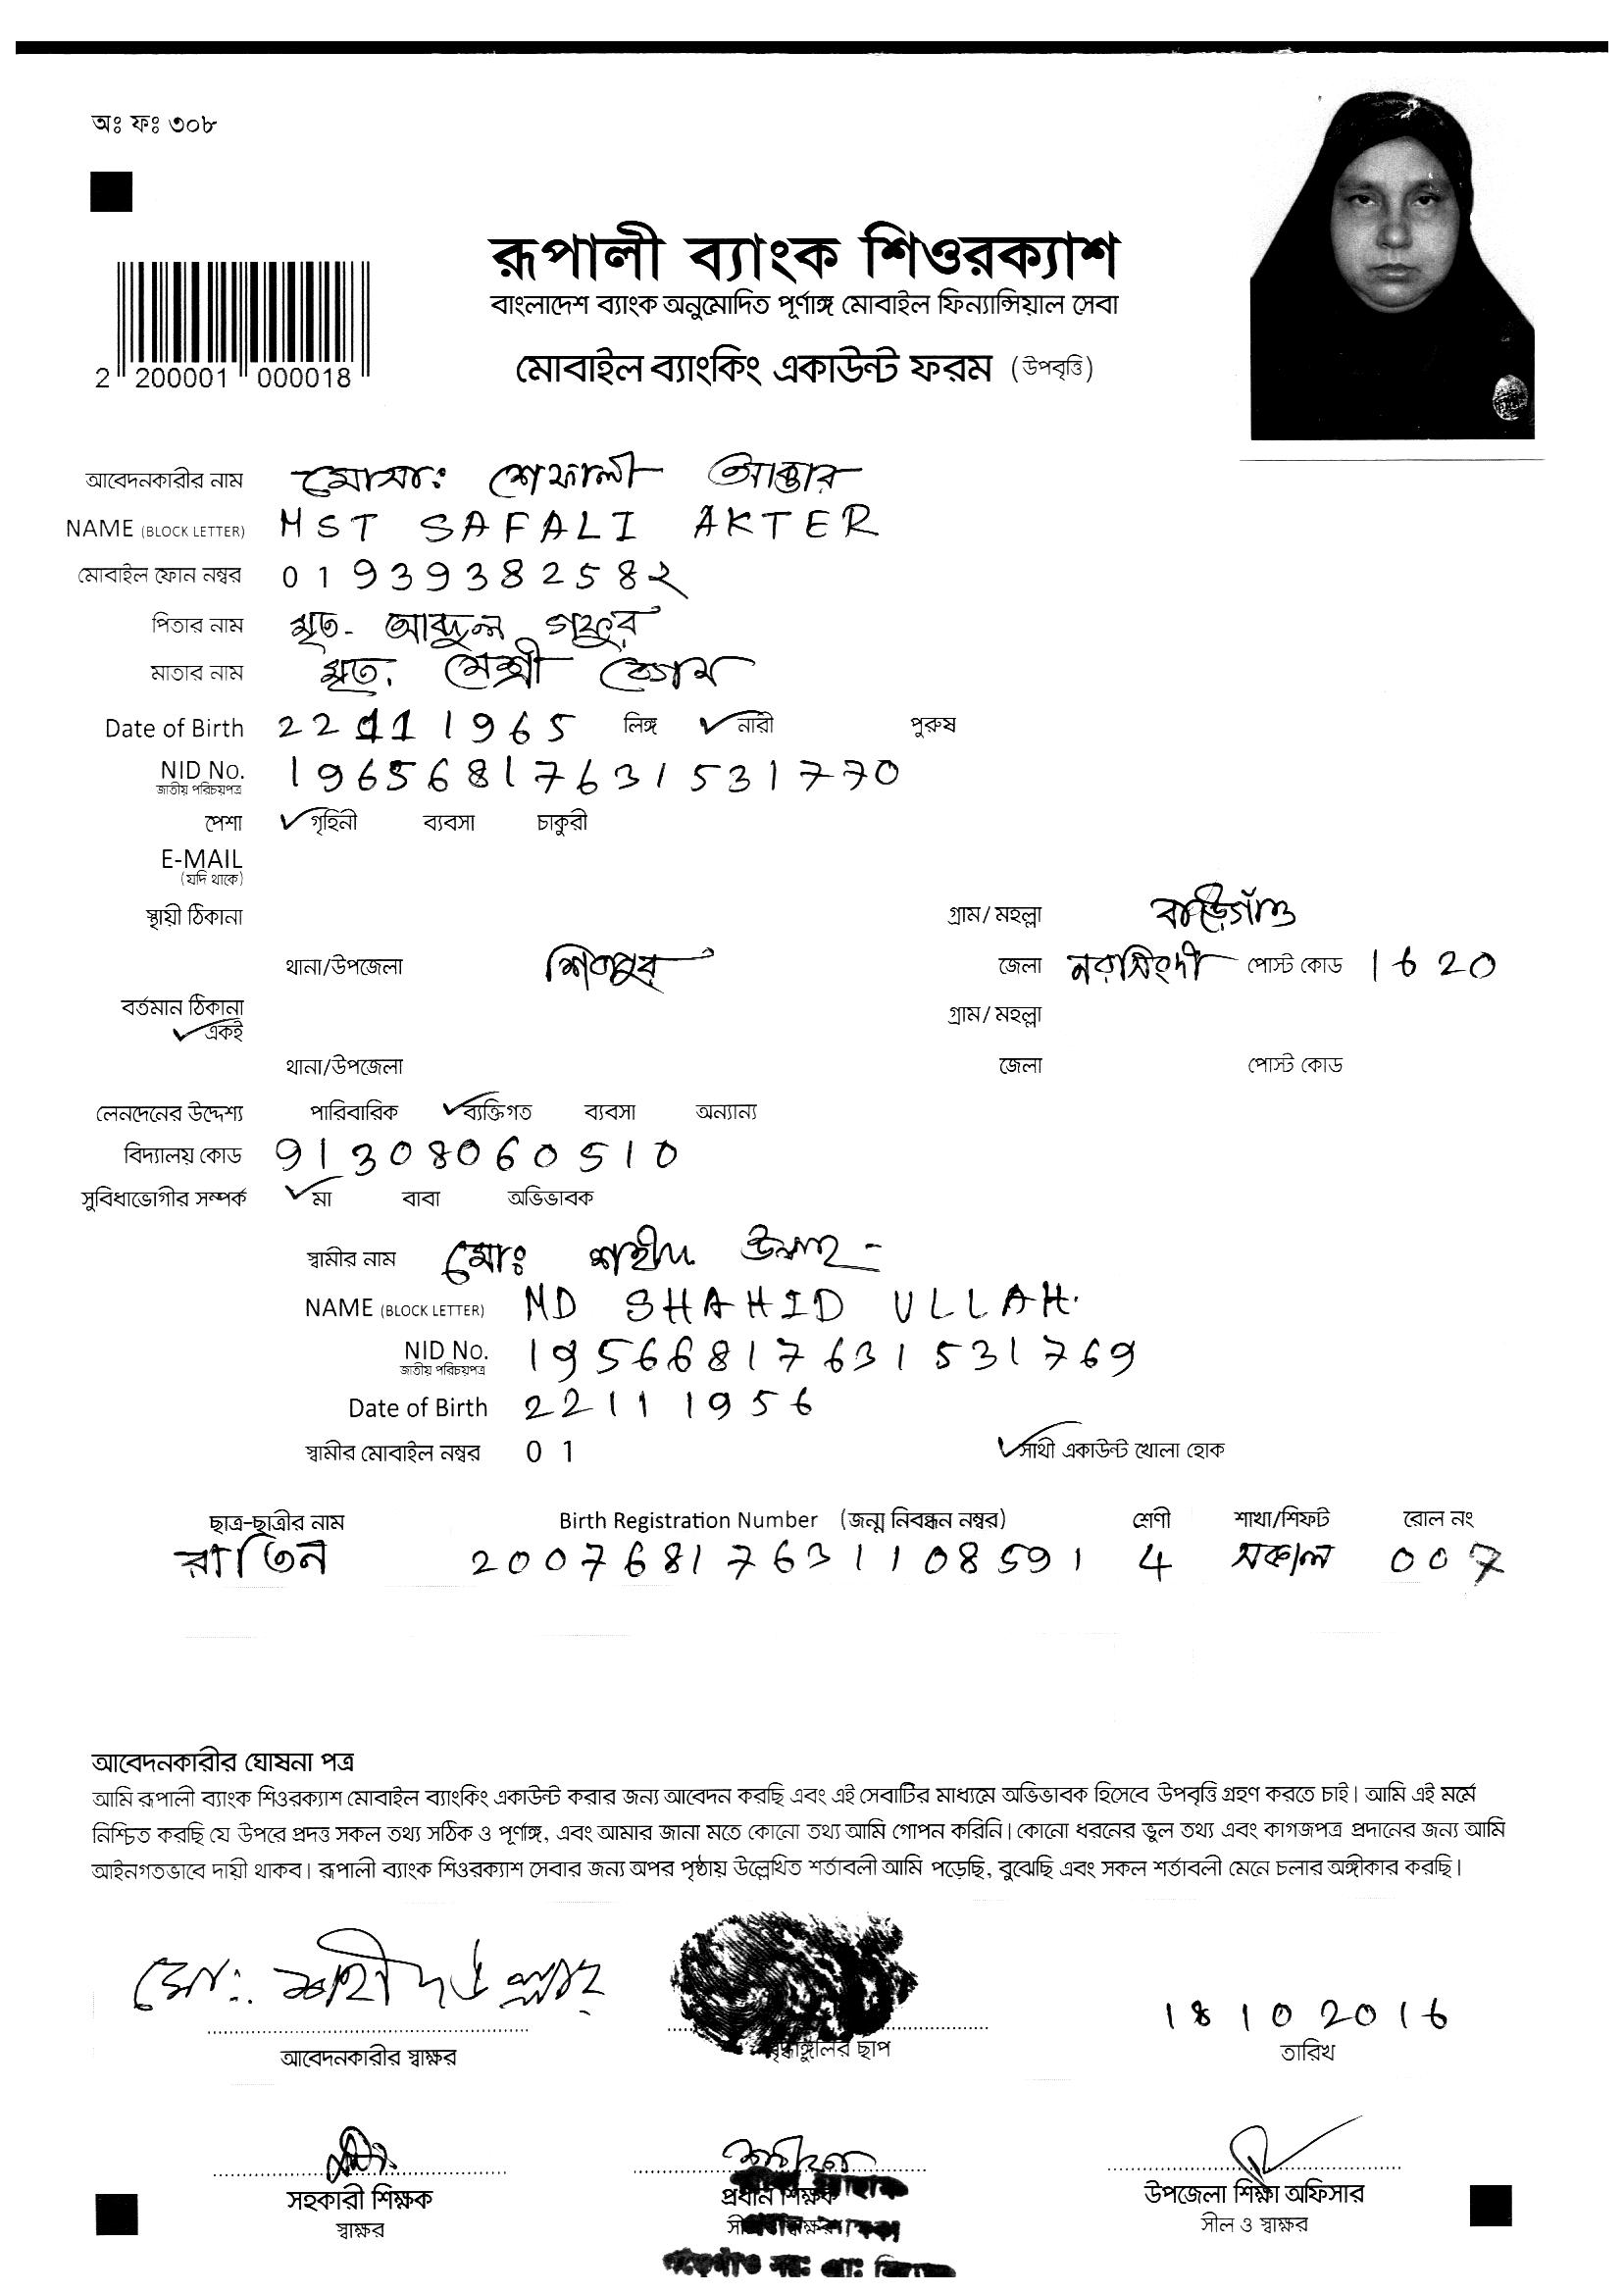 অঃ ফঃ ৩০৮
রূপালী ব্যাংক শিওরক্যাশ
বাংলাদেশ ব্যাংক অনুমোদিত পূর্ণাঙ্গ মোবাইল ফিন্যান্সিয়াল সেবা
মোবাইল ব্যাংকিং একাউন্ট ফরম (উপবৃত্তি)
2 200001 000018
আবেদনকারীর নাম মোসাঃ শেফালী আক্তার
NAME (BLOCK LETTER) MST SAFALI AKTER
মোবাইল ফোন নম্বর 01939382582
পিতার নাম মৃত- আব্দুল গফুর
মাতার নাম মৃত. মেশ্রী বেগম
Date of Birth 22111965 লিঙ্গ নারী পুরুষ
NID No. 19656817631531770
জাতীয় পরিচয়পত্র
পেশা গৃহিনী ব্যবসা চাকুরী
E-MAIL
(যদি থাকে)
স্থায়ী ঠিকানা গ্রাম/ মহল্লা বাড়ৈগাঁও
থানা/উপজেলা শিবপুর জেলা নরসিংদী পোস্ট কোড 1620
বর্তমান ঠিকানা গ্রাম/ মহল্লা
একই
থানা/উপজেলা জেলা পোস্ট কোড
লেনদেনের উদ্দেশ্য পারিবারিক ব্যক্তিগত ব্যবসা অন্যান্য
বিদ্যালয় কোড 91308060510
সুবিধাভোগীর সম্পর্ক মা বাবা অভিভাবক
স্বামীর নাম মোঃ শহীদ উল্লাহ -
NAME (BLOCK LETTER) MD SHAHID ULLAH.
NID No. 19566817631531769
জাতীয় পরিচয়পত্র
Date of Birth 22111956
স্বামীর মোবাইল নম্বর 01 সাথী একাউন্ট খোলা হোক
ছাত্র-ছাত্রীর নাম Birth Registration Number (জন্ম নিবন্ধন নম্বর) শ্রেণী শাখা/শিফট রোল নং
রাতিন 20076817631108591 4 সকাল 007
আবেদনকারীর ঘোষনা পত্র
আমি রূপালী ব্যাংক শিওরক্যাশ মোবাইল ব্যাংকিং একাউন্ট করার জন্য আবেদন করছি এবং এই সেবাটির মাধ্যমে অভিভাবক হিসেবে উপবৃত্তি গ্রহণ করতে চাই। আমি এই মর্মে
নিশ্চিত করছি যে উপরে প্রদত্ত সকল তথ্য সঠিক ও পূর্ণাঙ্গ, এবং আমার জানা মতে কোনো তথ্য আমি গোপন করিনি। কোনো ধরনের ভুল তথ্য এবং কাগজপত্র প্রদানের জন্য আমি
আইনগতভাবে দায়ী থাকব। রূপালী ব্যাংক শিওরক্যাশ সেবার জন্য অপর পৃষ্ঠায় উল্লেখিত শর্তাবলী আমি পড়েছি, বুঝেছি এবং সকল শর্তাবলী মেনে চলার অঙ্গীকার করছি।
মোঃ শহীদউল্লাহ 18102016
আবেদনকারীর স্বাক্ষর বৃদ্ধাঙ্গুলির ছাপ তারিখ
সহকারী শিক্ষক প্রধান শিক্ষক উপজেলা শিক্ষা অফিসার
স্বাক্ষর সীল ও স্বাক্ষর সীল ও স্বাক্ষর